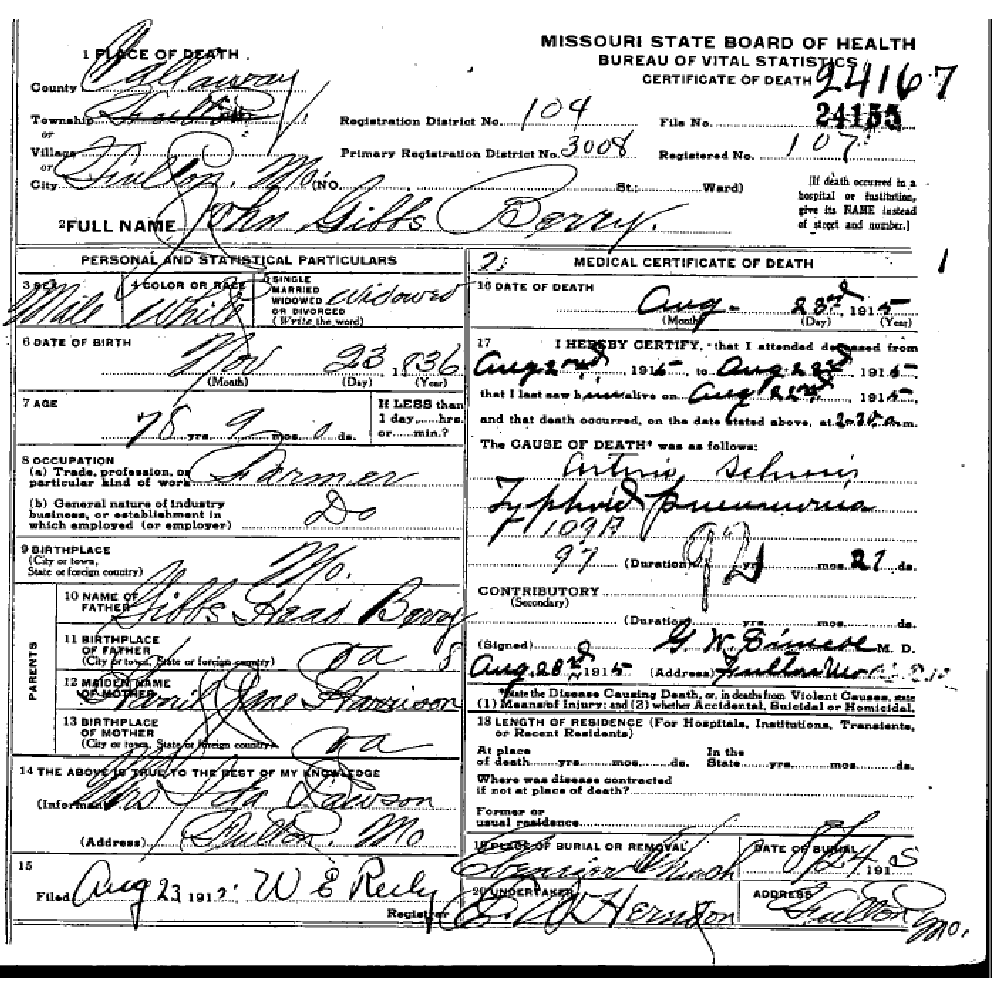 MISSOURI STATE BOARD OF HEALTH
BUREAU OF VITAL STATISTICS
CERTIFICATE OF DEATH
24167
1 PLACE OF DEATH
County Callaway
Township Fulton
or
Village
or
City Fulton, Mo. (NO. St.; Ward)
Registration District No. 104
File No. 24155
Primary Registration District No. 3008
Registered No. 107
[If death occurred in a
hospital or institution,
give its NAME instead
of street and number.]
2 FULL NAME John Gibbs Berry.
PERSONAL AND STATISTICAL PARTICULARS
3 SEX Male
4 COLOR OR RACE White
5 SINGLE
MARRIED
WIDOWED
OR DIVORCED
(Write the word)
Widowed
6 DATE OF BIRTH
Nov 23, 1836
(Month) (Day) (Year)
7 AGE
78 yrs. 9 mos. 0 ds.
If LESS than
1 day,....hrs.
or.....min.?
8 OCCUPATION
(a) Trade, profession, or
particular kind of work Farmer
(b) General nature of industry
business, or establishment in
which employed (or employer) Do
9 BIRTHPLACE
(City or town,
State or foreign country) Mo.
PARENTS
10 NAME OF
FATHER Gibbs Head Berry
11 BIRTHPLACE
OF FATHER
(City or town, State or foreign country) Va
12 MAIDEN NAME
OF MOTHER Jane Harrison
13 BIRTHPLACE
OF MOTHER
(City or town, State or foreign country) Va
14 THE ABOVE IS TRUE TO THE BEST OF MY KNOWLEDGE
(Informant) Mrs Dawson
(Address) Fulton, Mo
15
Filed Aug 23 1915 W E Reily
Registrar
MEDICAL CERTIFICATE OF DEATH
1
16 DATE OF DEATH
Aug. 23rd, 1915
(Month) (Day) (Year)
17 I HEREBY CERTIFY, that I attended deceased from
Aug 2nd, 1915, to Aug 22d 1915
that I last saw him alive on Aug 22nd, 1915
and that death occurred, on the date stated above, at m.
The CAUSE OF DEATH* was as follows:
Typhoid Pneumonia
109A
97 92
(Duration) yrs. mos. 21 ds.
CONTRIBUTORY
(Secondary)
(Duration) yrs. mos. ds.
(Signed) G. W. M. D.
Aug. 23rd, 1915 (Address) Fulton Mo
*State the Disease Causing Death, or, in deaths from Violent Causes, state
(1) Means of Injury; and (2) whether Accidental, Suicidal or Homicidal.
18 LENGTH OF RESIDENCE (For Hospitals, Institutions, Transients,
or Recent Residents)
At place
of death yrs. mos. ds.
In the
State yrs. mos. ds.
Where was disease contracted
if not at place of death?
Former or
usual residence
19 PLACE OF BURIAL OR REMOVAL
DATE OF BURIAL
8/24 1915
20 UNDERTAKER
E. W Herndon
ADDRESS
Fulton Mo.